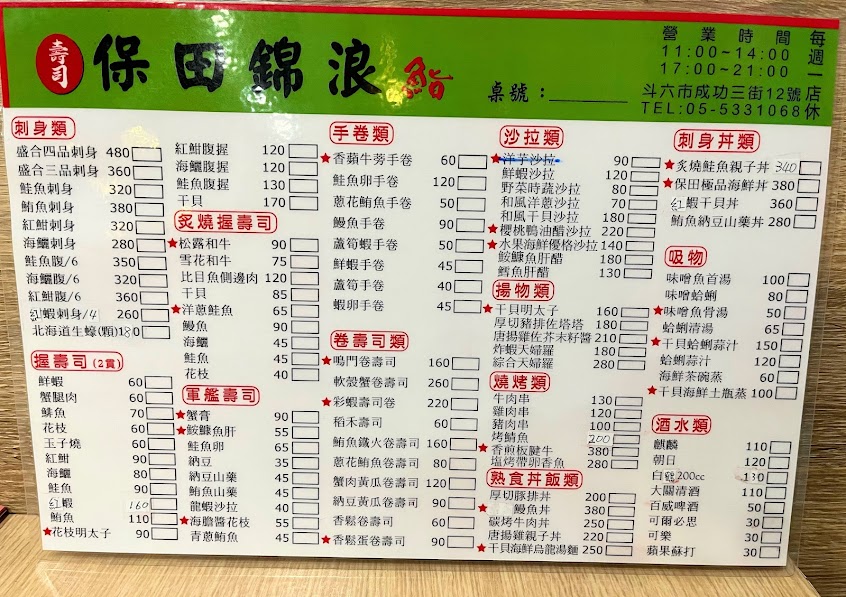 壽司 保田錦浪 鮨
桌號：______
營業時間 每週一店休
11:00~14:00
17:00~21:00
斗六市成功三街12號
TEL:05-5331068
刺身類
盛合四品刺身 480
盛合三品刺身 360
鮭魚刺身 320
鮪魚刺身 380
紅魽刺身 320
海鱺刺身 280
鮭魚腹/6 350
海鱺腹/6 320
紅魽腹/6 360
紅蝦刺身/4 260
北海道生蠔(顆)180
握壽司(2貫)
鮮蝦 60
蟹腿肉 60
鯡魚 70
花枝 60
玉子燒 60
紅魽 90
海鱺 80
鮭魚 90
紅蝦 160
鮪魚 110
★花枝明太子 90
紅魽腹握 120
海鱺腹握 120
鮭魚腹握 130
干貝 170
炙燒握壽司
★松露和牛 90
雪花和牛 75
比目魚側邊肉 120
干貝 85
★洋蔥鮭魚 65
鰻魚 90
海鱺 45
鮭魚 45
花枝 40
軍艦壽司
★蟹膏 90
★鮟鱇魚肝 55
鮭魚卵 65
納豆 35
納豆山藥 45
鮪魚山藥 45
龍蝦沙拉 40
★海膽醬花枝 55
青蔥鮪魚 45
手卷類
★香蘋牛蒡手卷 60
鮭魚卵手卷 120
蔥花鮪魚手卷 50
鰻魚手卷 90
蘆筍蝦手卷 50
鮮蝦手卷 45
蘆筍手卷 40
蝦卵手卷 45
卷壽司類
★鳴門卷壽司 160
軟殼蟹卷壽司 260
★彩蝦壽司卷 220
稻禾壽司 60
鮪魚鐵火卷壽司 160
蔥花鮪魚卷壽司 80
蟹肉黃瓜卷壽司 120
納豆黃瓜卷壽司 90
香鬆卷壽司 60
★香鬆蛋卷壽司 90
沙拉類
★洋芋沙拉 90
鮮蝦沙拉 120
野菜時蔬沙拉 80
和風洋蔥沙拉 70
和風干貝沙拉 180
★櫻桃鴨油醋沙拉 220
★水果海鮮優格沙拉 140
鮟鱇魚肝醋 180
鱈魚肝醋 130
揚物類
★干貝明太子 160
厚切豬排佐塔塔 180
唐揚雞佐芥末籽醬 210
炸蝦天婦羅 180
綜合天婦羅 280
燒烤類
牛肉串 130
雞肉串 120
豬肉串 100
烤鯖魚 200
★香煎板腱牛 380
塩烤帶卵香魚 280
熟食丼飯類
厚切豚排丼 200
★鰻魚丼 380
碳烤牛肉丼 250
唐揚雞親子丼 220
★干貝海鮮烏龍湯麵 250
刺身丼類
★炙燒鮭魚親子丼 340
★保田極品海鮮丼 380
紅蝦干貝丼 380
鮪魚納豆山藥丼 280
吸物
味噌魚首湯 100
味噌蛤蜊 80
★味噌魚骨湯 50
蛤蜊清湯 65
★干貝蛤蜊蒜汁 150
蛤蜊蒜汁 120
海鮮茶碗蒸 60
★干貝海鮮土瓶蒸 100
酒水類
麒麟 110
朝日 120
白鶴200cc 130
大關清酒 110
百威啤酒 50
可爾必思 30
可樂 30
蘋果蘇打 30